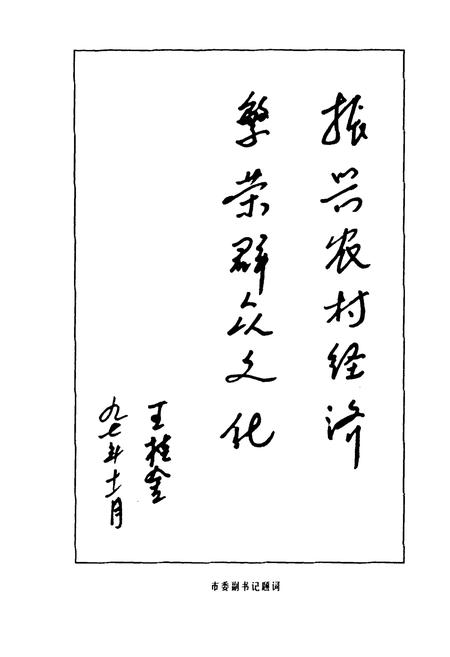 振兴农村经济
繁荣群众文化
王桂金
九七年十一月
市委副书记题词